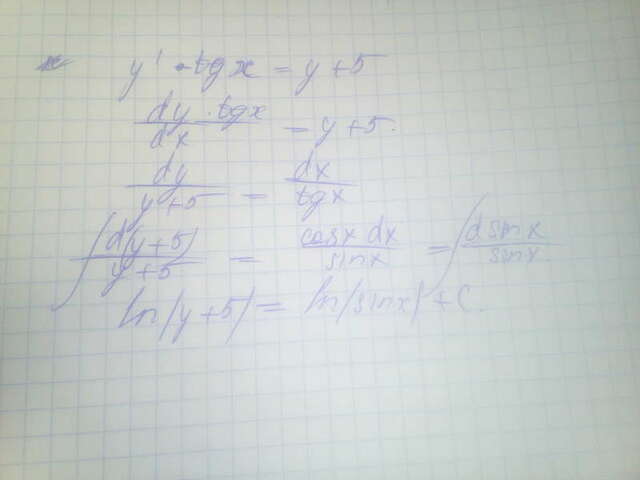 y' · tg x = y + 5
dy · tg x / dx = y + 5.
dy / y + 5 = dx / tg x
∫ d(y + 5) / y + 5 = cos x dx / sin x = ∫ d sin x / sin x
ln |y + 5| = ln |sin x| + C.